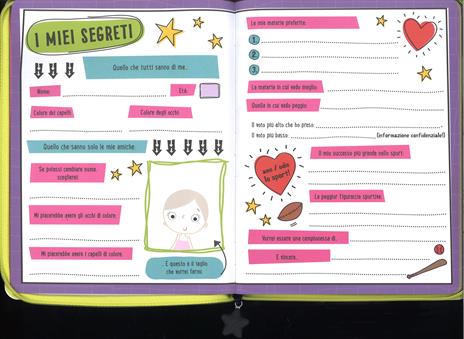 I MIEI SEGRETI
Quello che tutti sanno di me.
Nome:
Età:
Colore dei capelli:
Colore degli occhi:
Quello che sanno solo le mie amiche:
Se potessi cambiare nome,
sceglierei:
Mi piacerebbe avere gli occhi di colore:
Mi piacerebbe avere i capelli di colore:
E questo è il taglio
che vorrei farmi.
Le mie materie preferite:
1
2
3
La materia in cui vado meglio:
Quella in cui vado peggio:
Il voto più alto che ho preso:
Il voto più basso:
(informazione confidenziale!)
amo / odio
lo sport!
Il mio successo più grande nello sport:
La peggior figuraccia sportiva:
Vorrei essere una campionessa di:
E vincere: